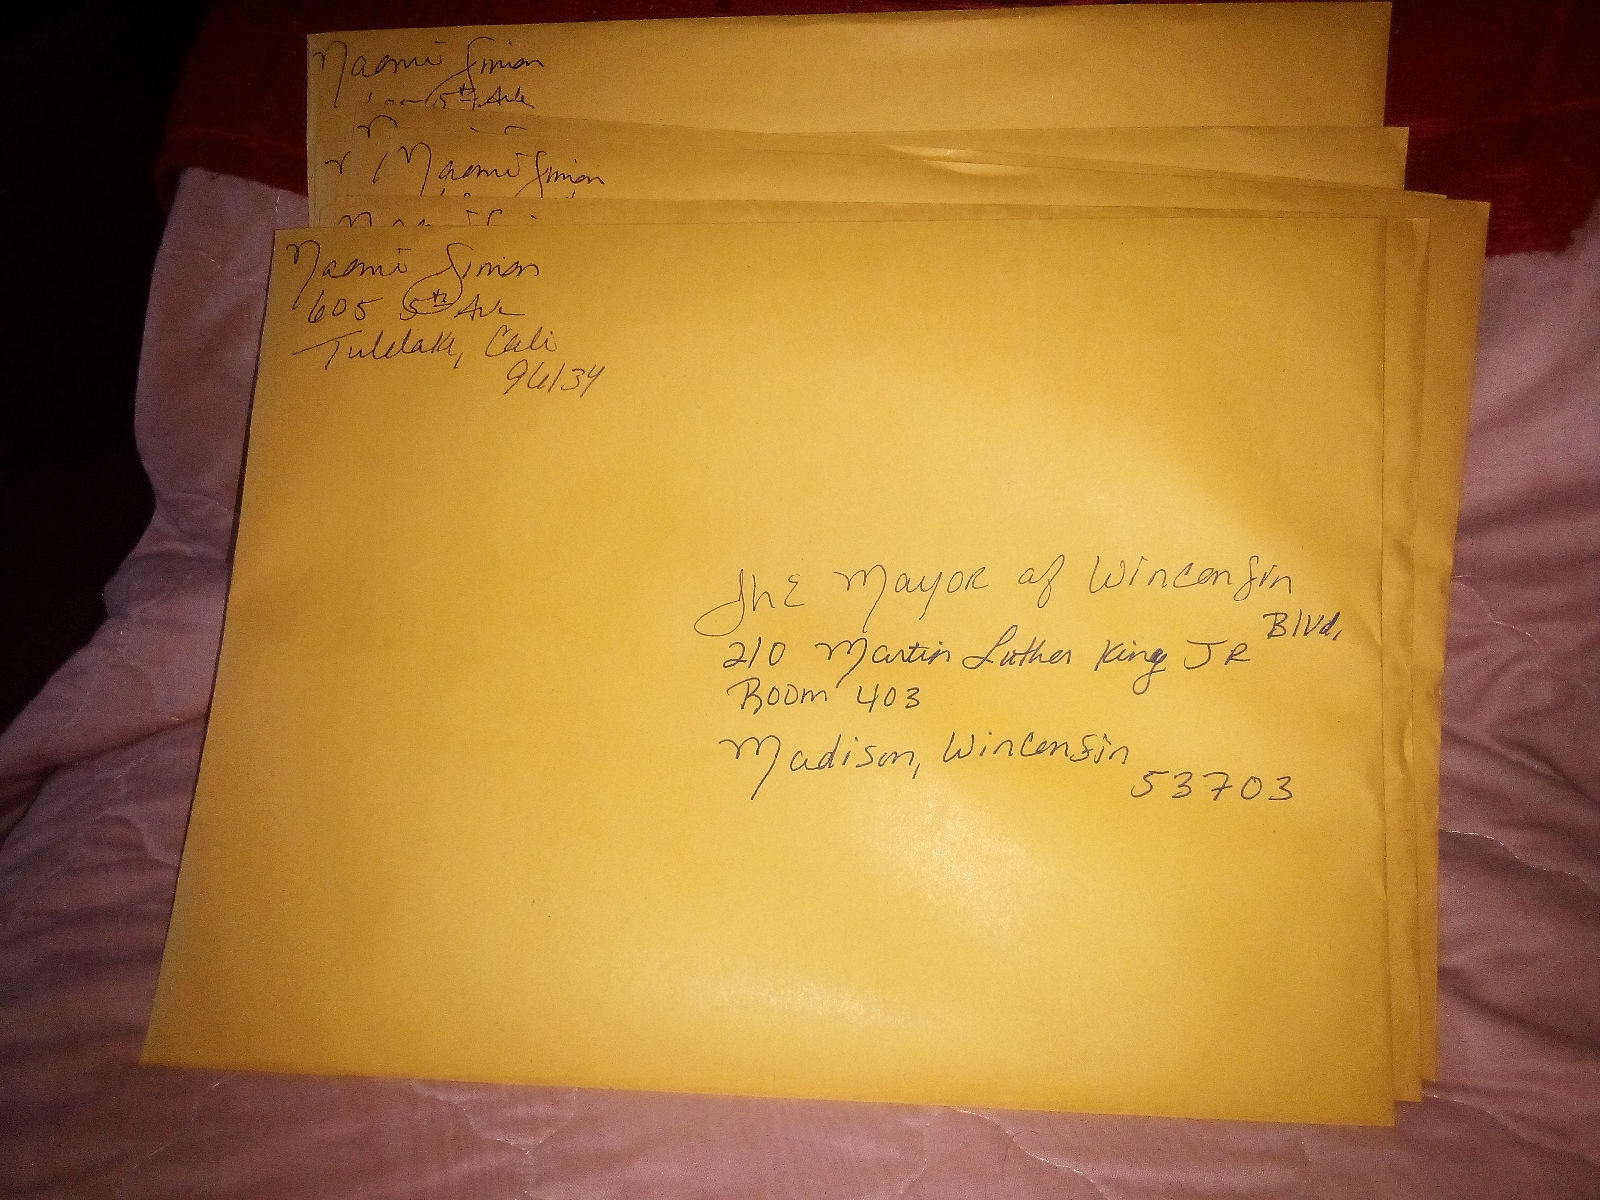 Naomi Simon
5th Ave
Naomi Simon
Naomi Simon
605 5th Ave
Tulelake, Cali
96134
The Mayor of Winconsin
210 Martin Luther King JR Blvd.
Room 403
Madison, Winconsin
53703